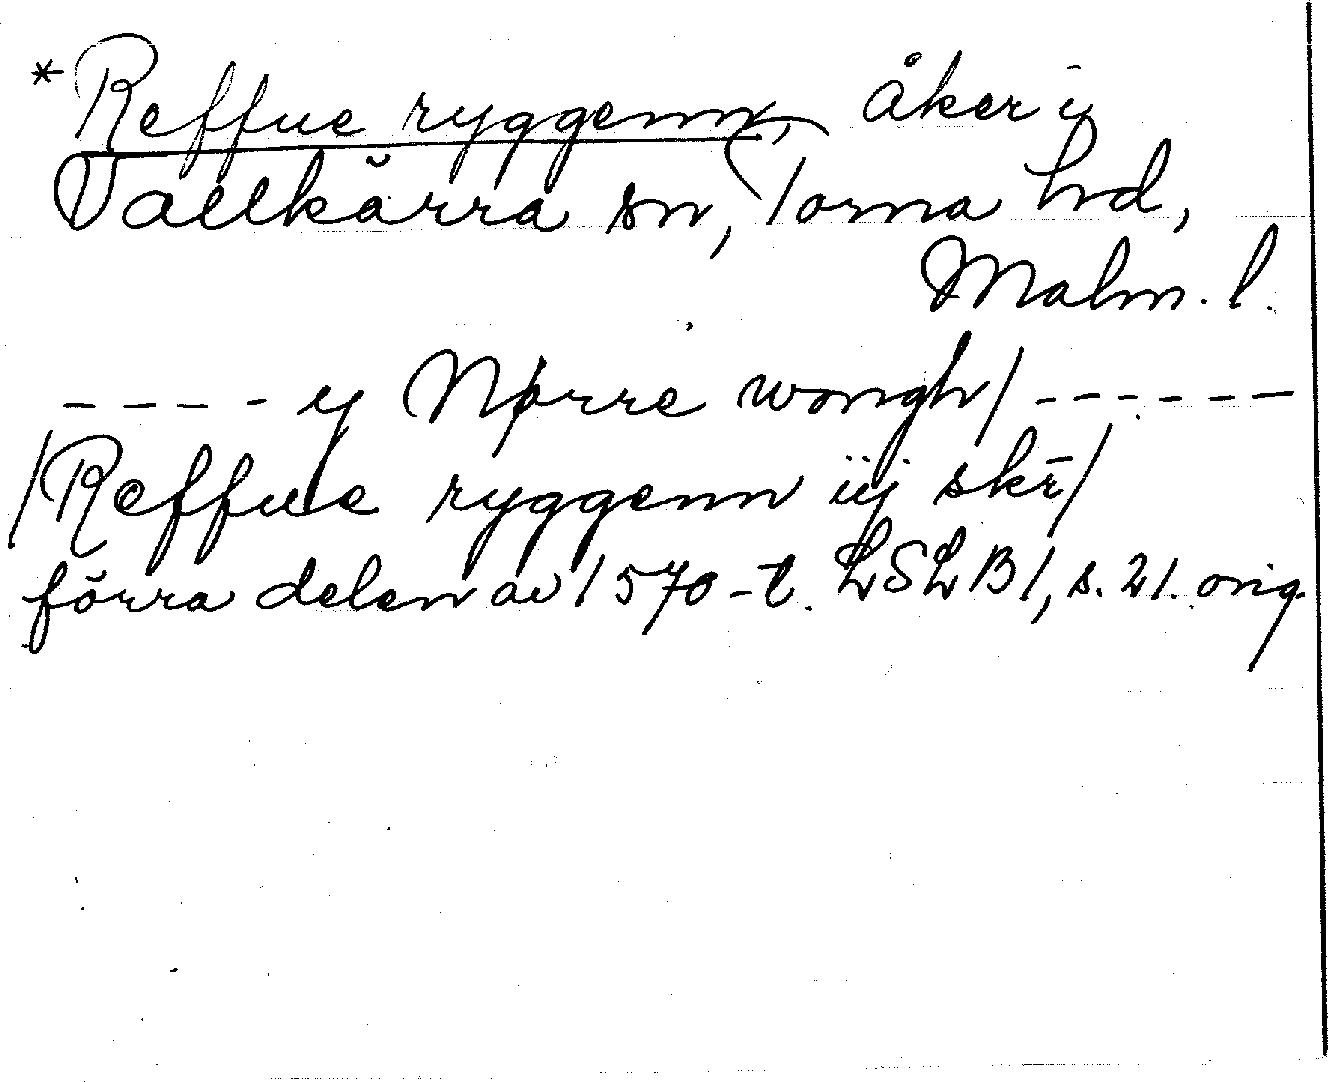 *Reffue ryggenn, åker i
Vallkärra sn, Torna hd,
Malm. l.
---- y Nørre wongh/ ------
/Reffue ryggenn iij skr̄/
förra delen av 1570-t. LSLB1, s. 21. orig.